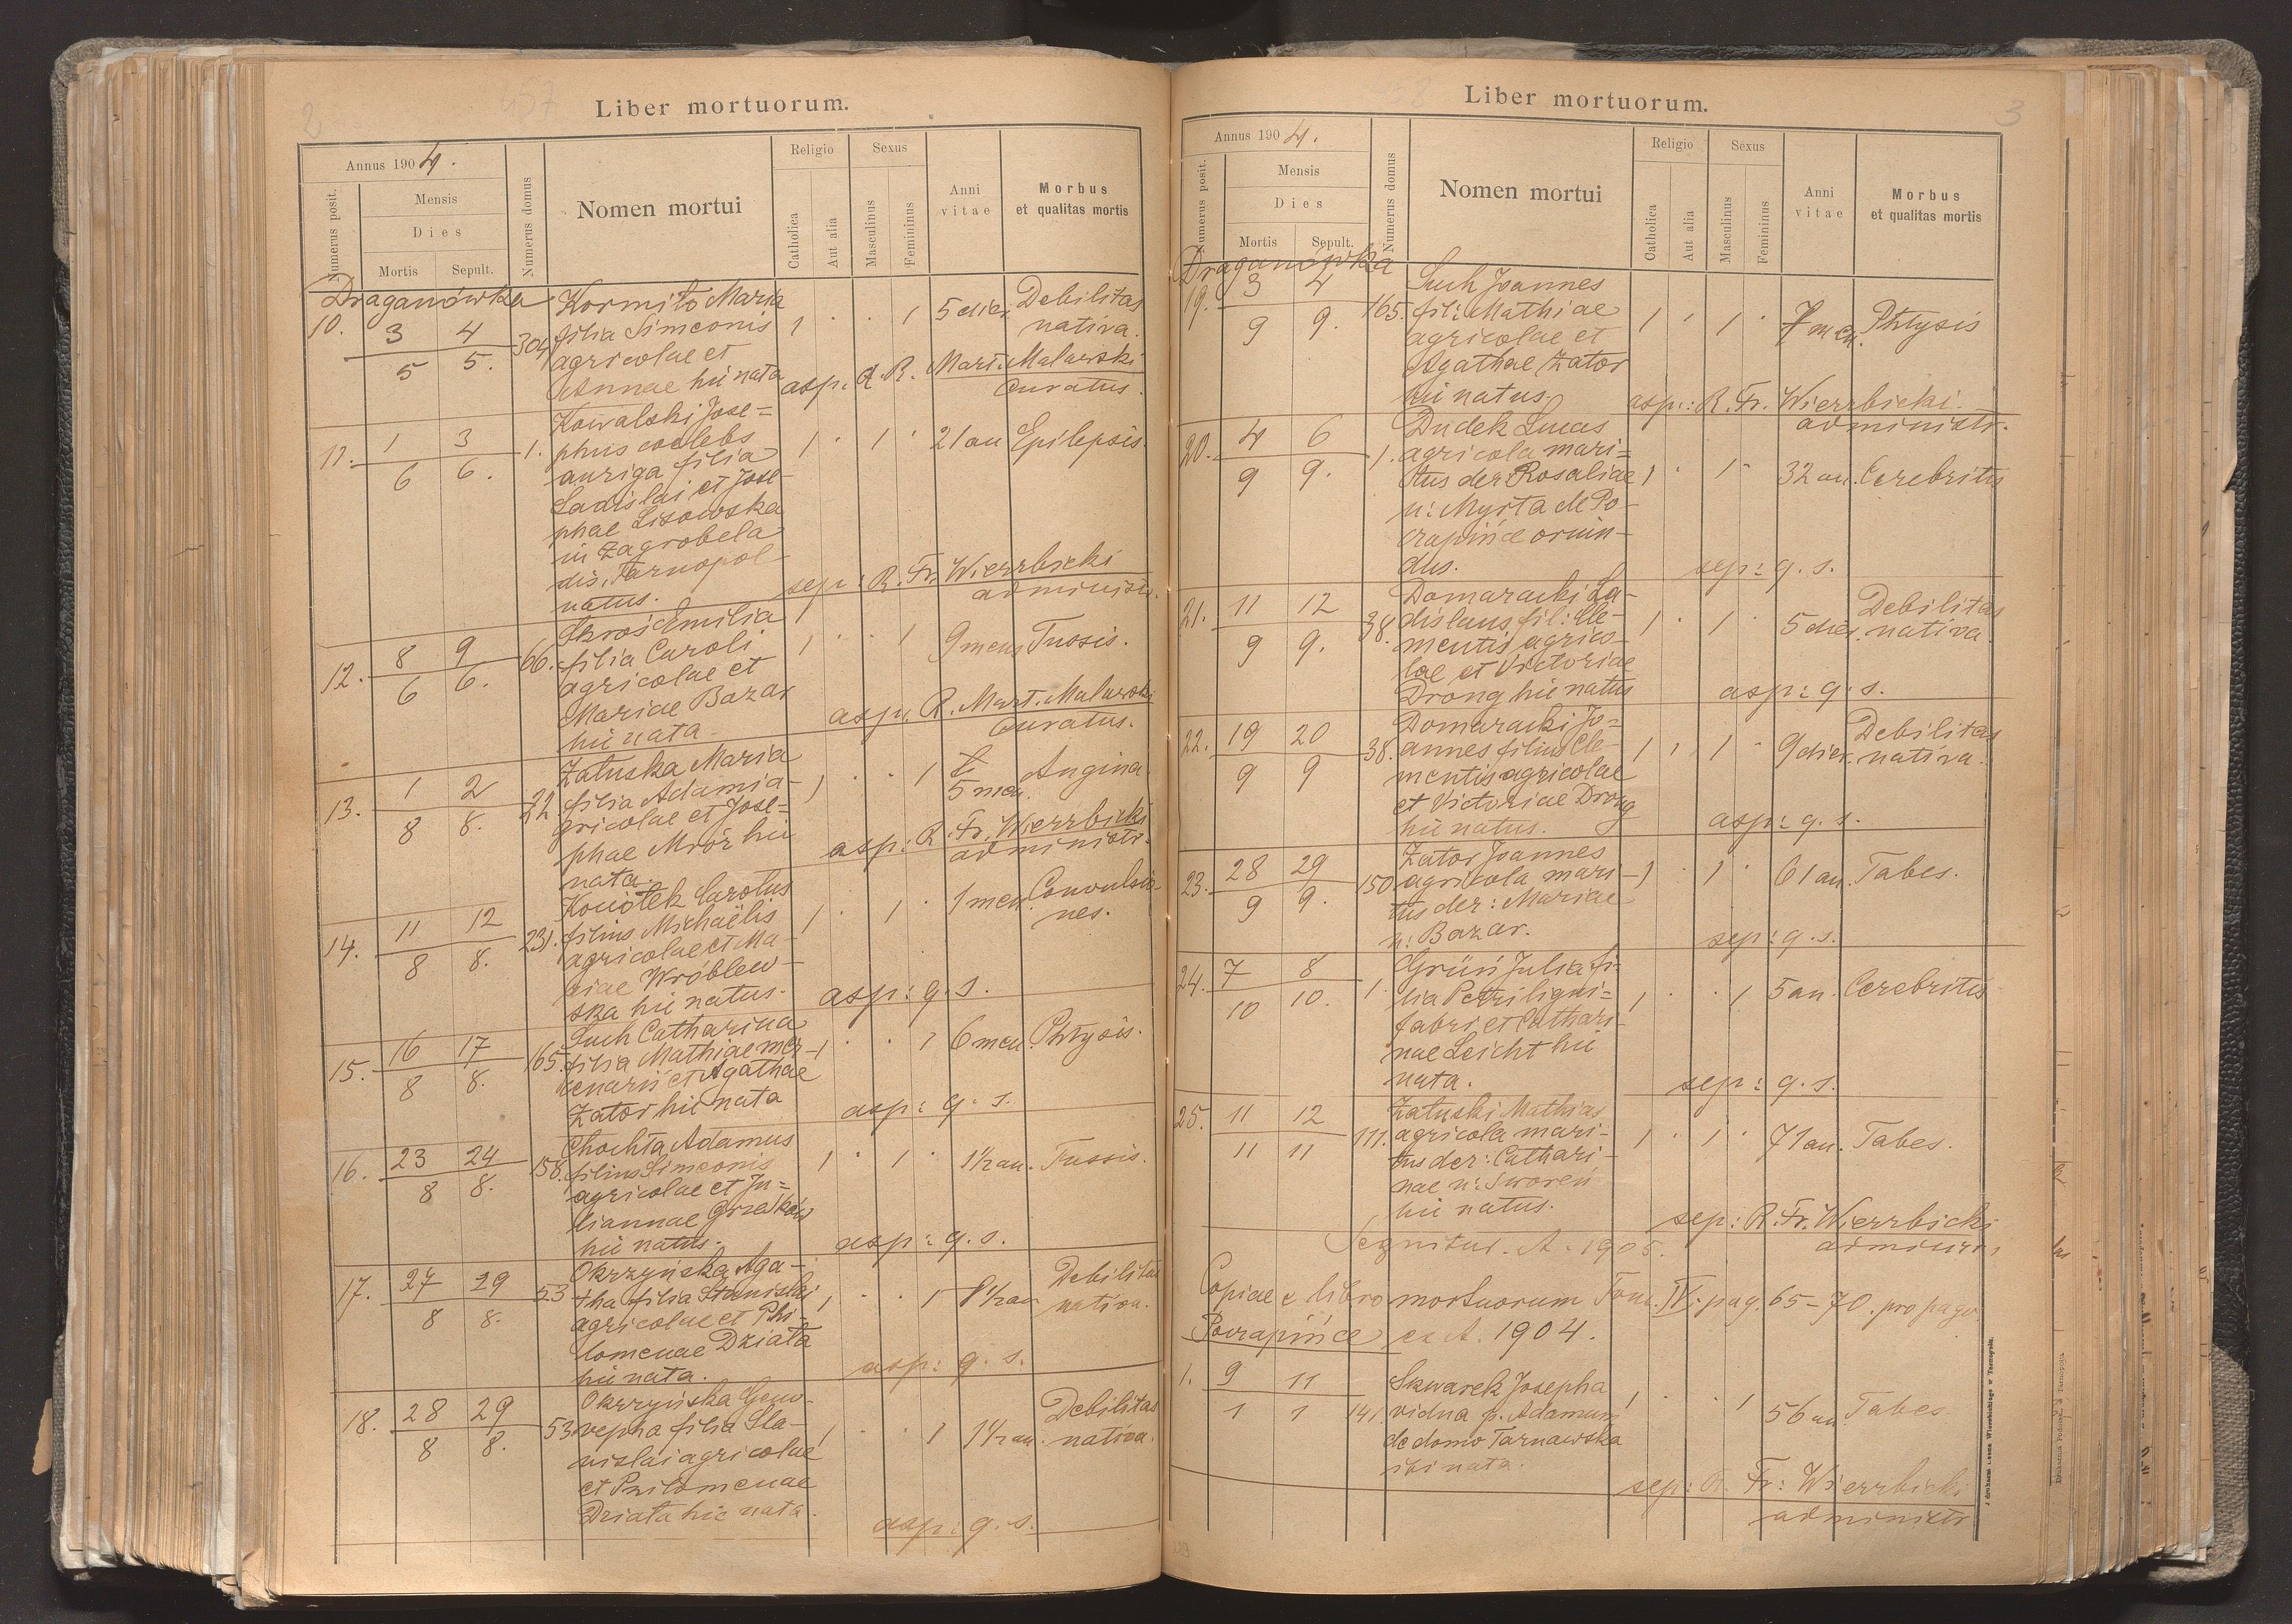 2
457
Liber mortuorum.
Annus 1904.
Numerus posit.
Mensis
Dies
Mortis
Sepult.
Numerus domus
Nomen mortui
Religio
Catholica
Aut alia
Sexus
Masculinus
Femininus
Anni vitae
Morbus
et qualitas mortis
Draganówka
10. 3 4 304 Kormiło Maria 1 . . 1 5 dier. Debilitas
5 5. filia Simeonis nativa.
agricolae et
Annae hic nata
asp. A. R. Mart. Malawski
Curatus.
11. 1 3 1. Kowalski Jose= 1 . 1 . 21 an Epilepsis.
6 6. phus coelebs
auriga filia
Ladislai et Jose-
phae Lisowska
in Zagrobela
dis. Tarnopol
natus.
sep: R. Fr. Wierzbicki
administr.
12. 8 9 66. Skroś Emilia 1 . . 1 9 mens Tussis.
6 6. filia Caroli
agricolae et
Mariae Bazar
hic nata.
asp. R. Mart. Malawski
Curatus.
13. 1 2 22 Załuska Maria 1 . . 1 5 men. Angina.
8 8. filia Adami a-
gricolae et Jose=
phae Mróz hic
nata.
asp: R. Fr. Wierzbicki
administr.
14. 11 12 231. Koniołek Carolus 1 . 1 . 1 men. Convulsio-
8 8. filius Michaëlis nes.
agricolae et Ma-
riae Wróblew-
ska hic natus.
asp: q. s.
15. 16 17 165. Such Catharina 1 . . 1 6 men. Phtysis.
8 8. filia Mathiae mer-
cenarii et Agathae
Zator hic nata
asp: q. s.
16. 23 24 158. Chochta Adamus 1 . 1 . 1½ an. Tussis.
8 8. filius Simeonis
agricolae et Ju=
liannae Grześków
hic natus.
asp: q. s.
17. 27 29 53 Okrzyńska Aga- 1 . . 1 1½ an Debilitas
8 8. tha filia Stanislai nativa.
agricolae et Phi-
lomenae Działa
hic nata.
asp: q. s.
18. 28 29 53. Okrzyńska Geno- 1 . . 1 1½ an. Debilitas
8 8. vepha filia Sta- nativa.
nislai agricolae
et Philomenae
Działa hic nata.
asp: q. s.
3
Liber mortuorum.
Annus 1904.
Numerus posit.
Mensis
Dies
Mortis
Sepult.
Numerus domus
Nomen mortui
Religio
Catholica
Aut alia
Sexus
Masculinus
Femininus
Anni vitae
Morbus
et qualitas mortis
Draganówka
19. 3 4 165. Such Joannes 1 . 1 . 7 men. Phtysis
9 9. fil: Mathiae
agricolae et
Agathae Zator
hic natus.
asp: R. Fr. Wierzbicki
administr.
20. 4 6 1. Dudek Lucas 1 . 1 . 32 an. Cerebritis
9 9. agricola mari=
tus der. Rosaliae
n: Myrta de Po-
czapińce oriun-
dus.
sep: q. s.
21. 11 12 38. Domaracki La- 1 . 1 . 5 dier. Debilitas
9 9. dislaus fil: Cle- nativa.
mentis agrico-
lae et Victoriae
Drong hic natus
asp: q. s.
22. 19 20 38. Domaracki Jo= 1 . 1 . 9 dier. Debilitas
9 9 annes filius Cle- nativa.
mentis agricolae
et Victoriae Drong
hic natus.
asp: q. s.
23. 28 29 150. Zator Joannes 1 . 1 . 61 an. Tabes.
9 9. agricola mari-
tus der: Mariae
n: Bazar.
sep: q. s.
24. 7 8 1. Grüń Julia fi- 1 . . 1 5 an. Cerebritis
10 10. lia Petri ligni=
fabri et Cathari-
nae Leicht hic
nata.
sep: q. s.
25. 11 12 111. Załuski Mathias 1 . 1 . 71 an. Tabes.
11 11 agricola mari-
tus der: Cathari-
nae n: Sworeń
hic natus.
sep: R. Fr. Wierzbicki
administr.
Sequitur. A. 1905.
Copiae e libro mortuorum Tom. IV. pag. 65-70. pro pago
Poczapińce ex A. 1904.
1. 9 11 141. Skwarek Josepha 1 . . 1 56 an. Tabes.
1 1 vidua p. Adamum
de domo Tarnawska
ibi nata.
sep: R. Fr: Wierzbicki
administr